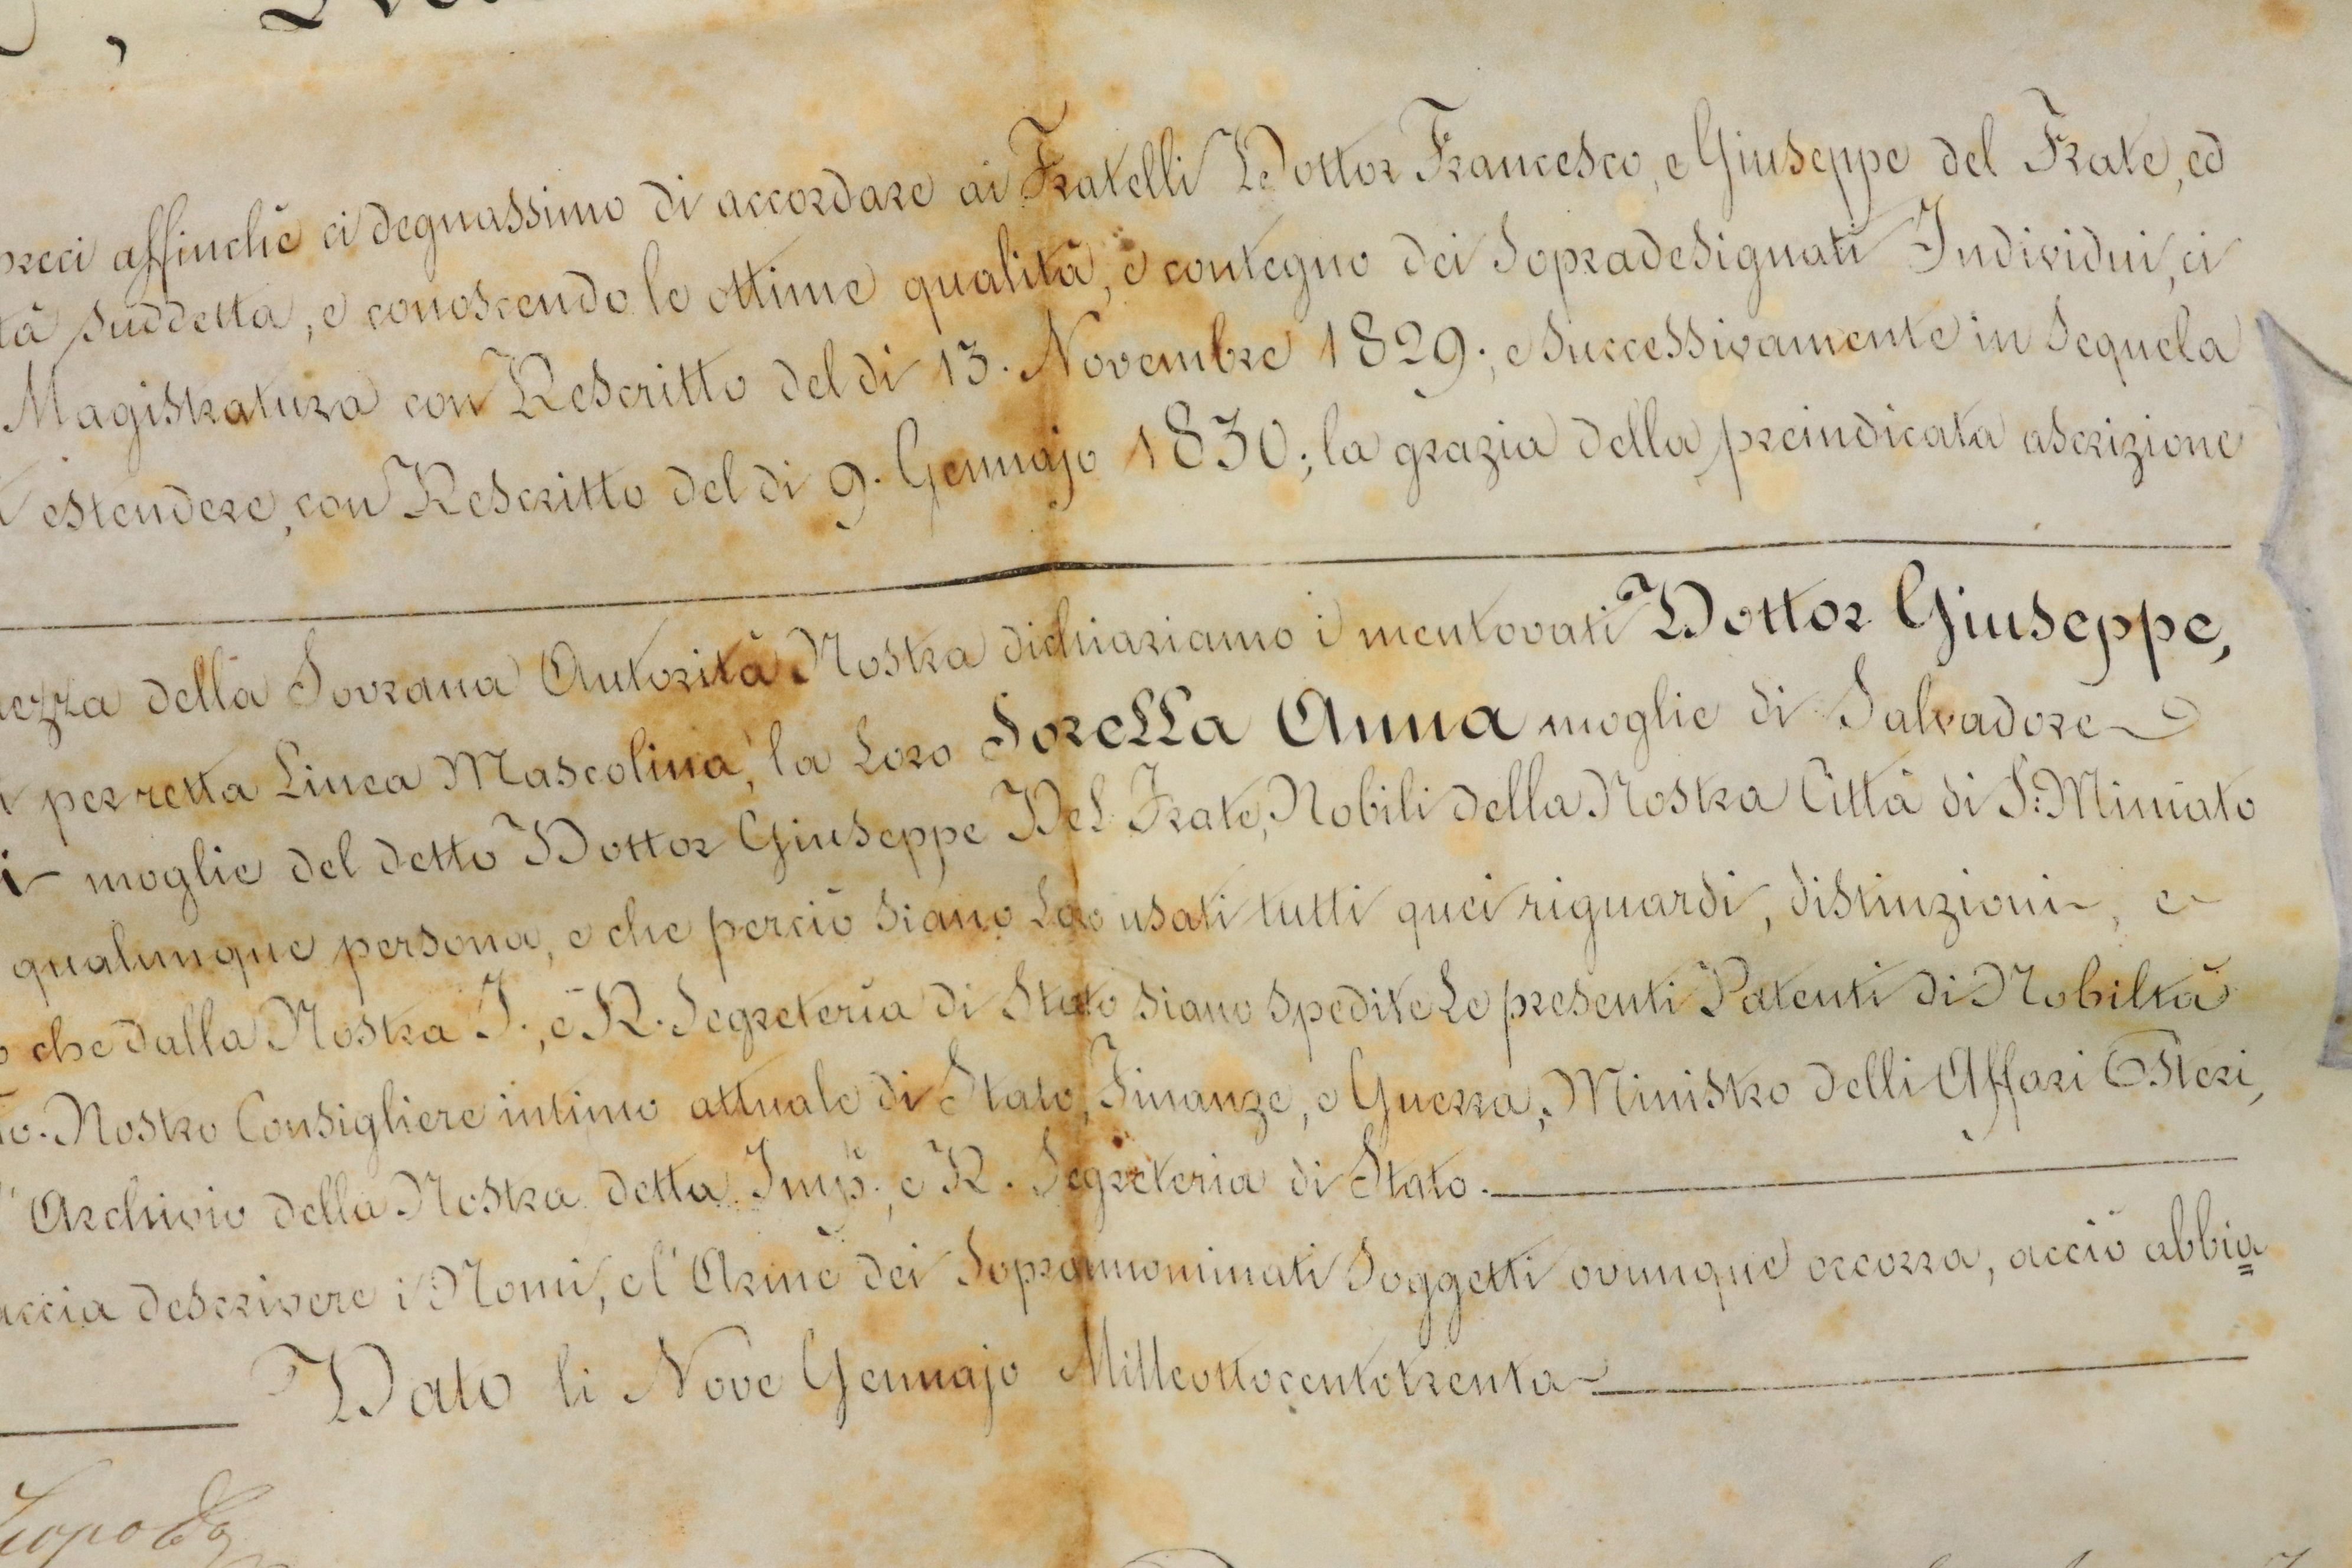 preci affinchè ci degnassimo di accordare ai Fratelli Dottor Francesco, e Giuseppe del Frate, ed
tà suddetta, e conoscendo le ottime qualità, e contegno dei Sopradesignati Individui, ci
Magistratura con Rescritto del di 13. Novembre 1829; e successivamente in sequela
estendere, con Rescritto del di 9. Gennajo 1830; la grazia della preindicata ascrizione
ezza della Sovrana Autorità Nostra dichiariamo i mentovati Dottor Giuseppe,
per retta Linea Mascolina, la Loro Sorella Anna moglie di Salvadore
i moglie del detto Dottor Giuseppe Del Frate, Nobili della Nostra Città di S: Miniato
qualunque persona, e che perciò siano Loro usati tutti quei riguardi, distinzioni, e
o che dalla Nostra I:, e R. Segreteria di Stato siano spedite Le presenti Patenti di Nobiltà
o. Nostro Consigliere intimo attuale di Stato, Finanze, e Guerra, Ministro delli Affari Esteri,
l'Archivio della Nostra detta Imp:, e R. Segreteria di Stato.
accia descrivere i Nomi, e l'Arme dei Soprannominati Soggetti ovunque occorra, acciò abbia
Dato li Nove Gennajo Milleottocentotrenta
Leopoldo